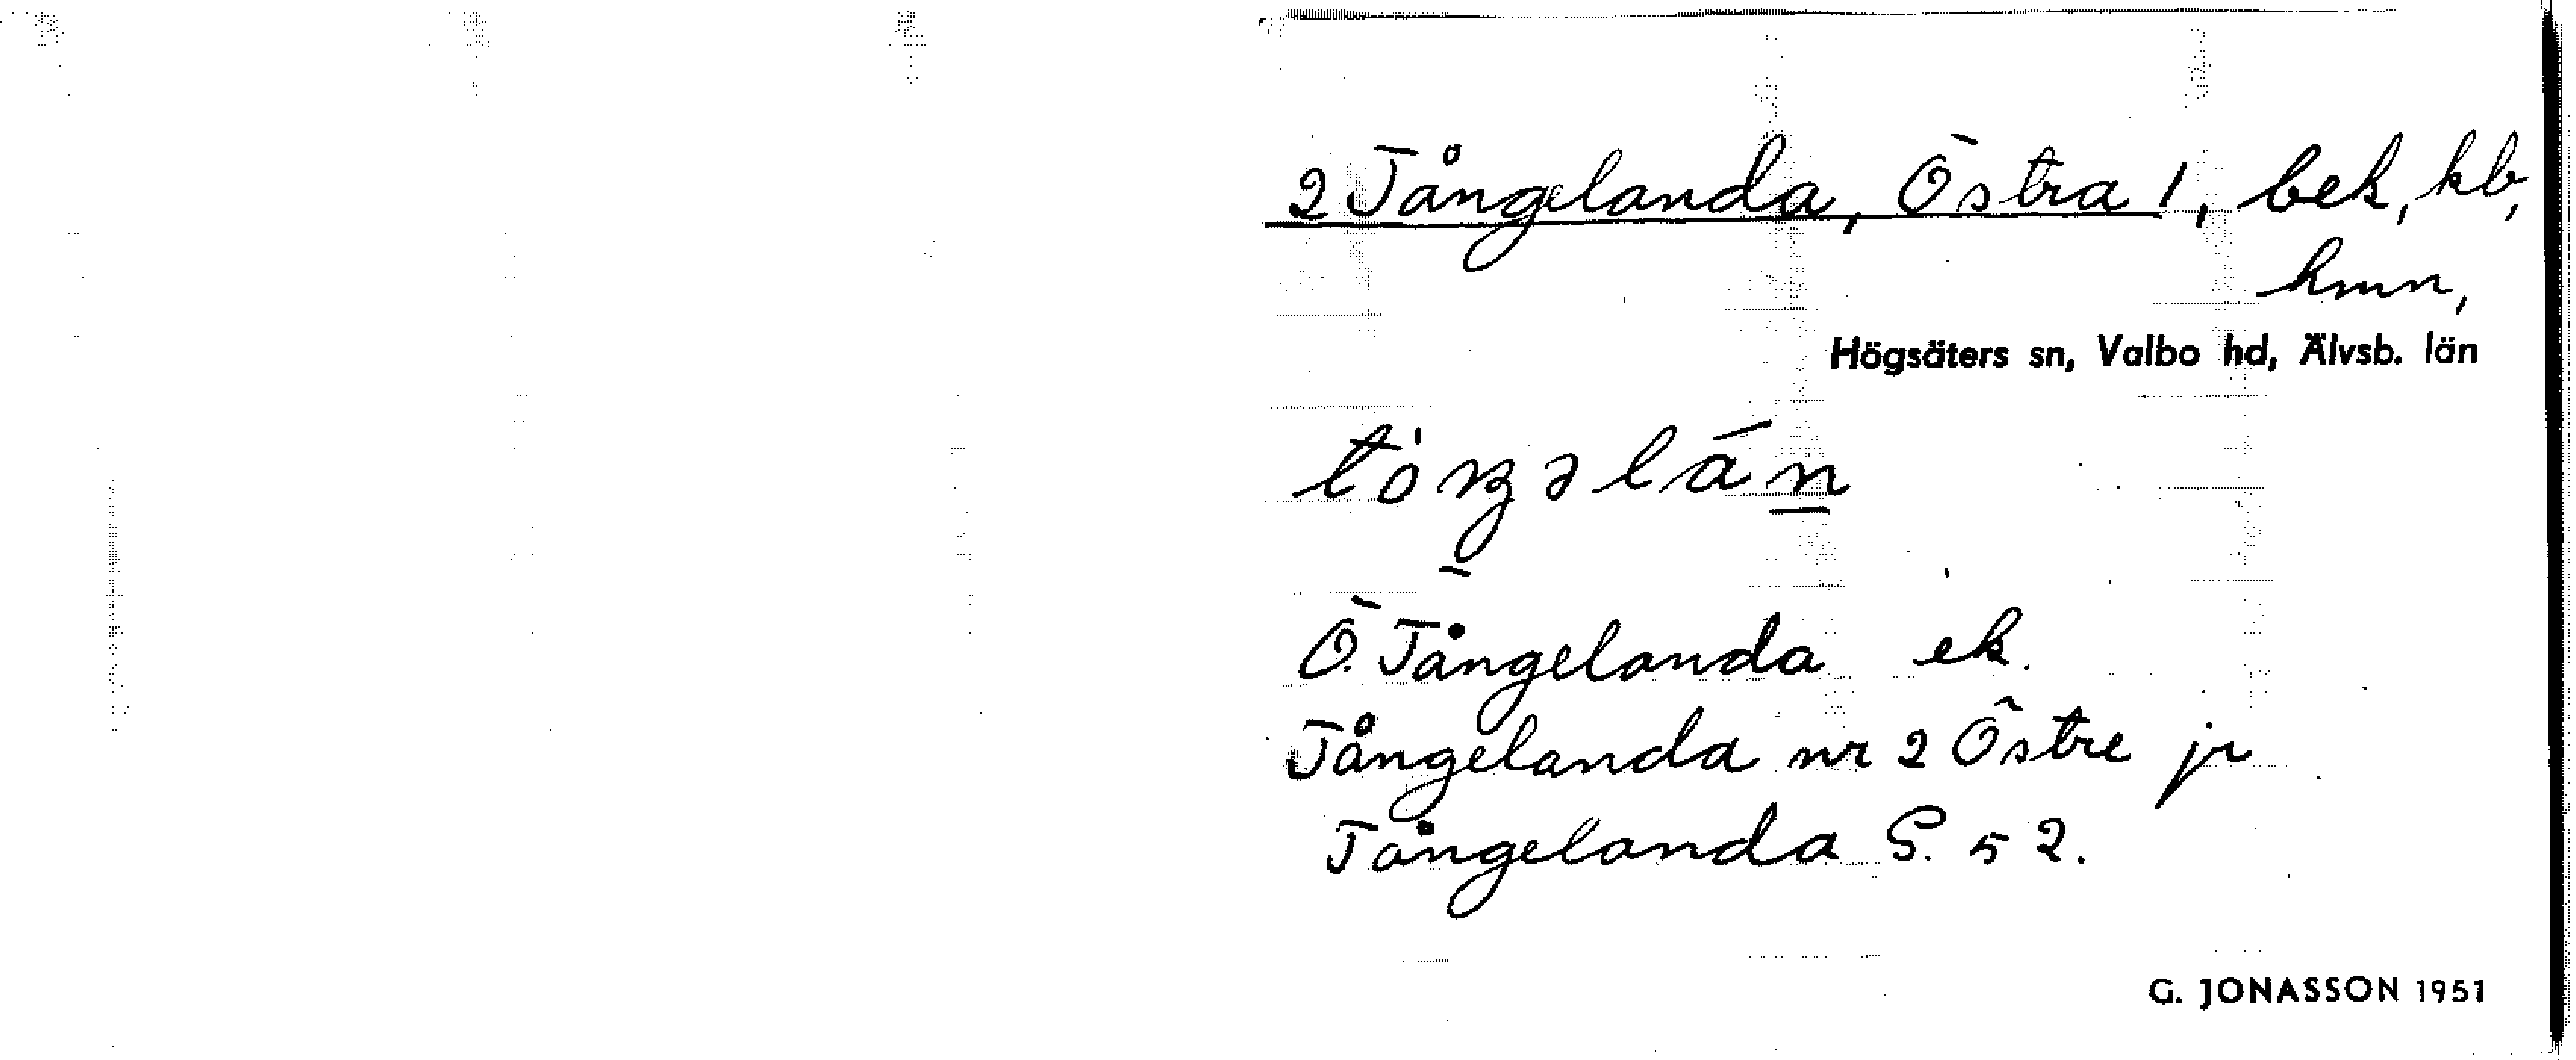 2 Tångelanda, Östra 1, bek, kb,
hmn,
Högsäters sn, Valbo hd, Älvsb. län
Ö. Tångelanda ek.
Tångelanda nr 2 Östre jr
Tångelanda S. 52.
G. JONASSON 1951